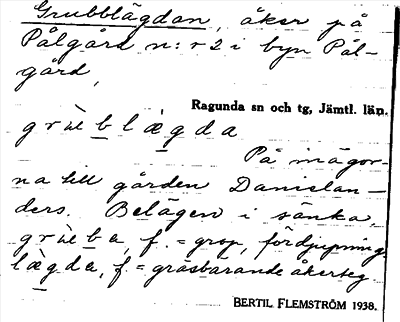 Grubblägdan, åker på
Pålgård n:r 2 i byn Pål-
gård,
Ragunda sn och tg, Jämtl. län.
grùblägda
På inägor-
na till gården Danislan-
ders. Belägen i sänka.
grùba, f. = grop, fördjupning.
lägda, f. = gräsbärande åkerteg.
BERTIL FLEMSTRÖM 1938.